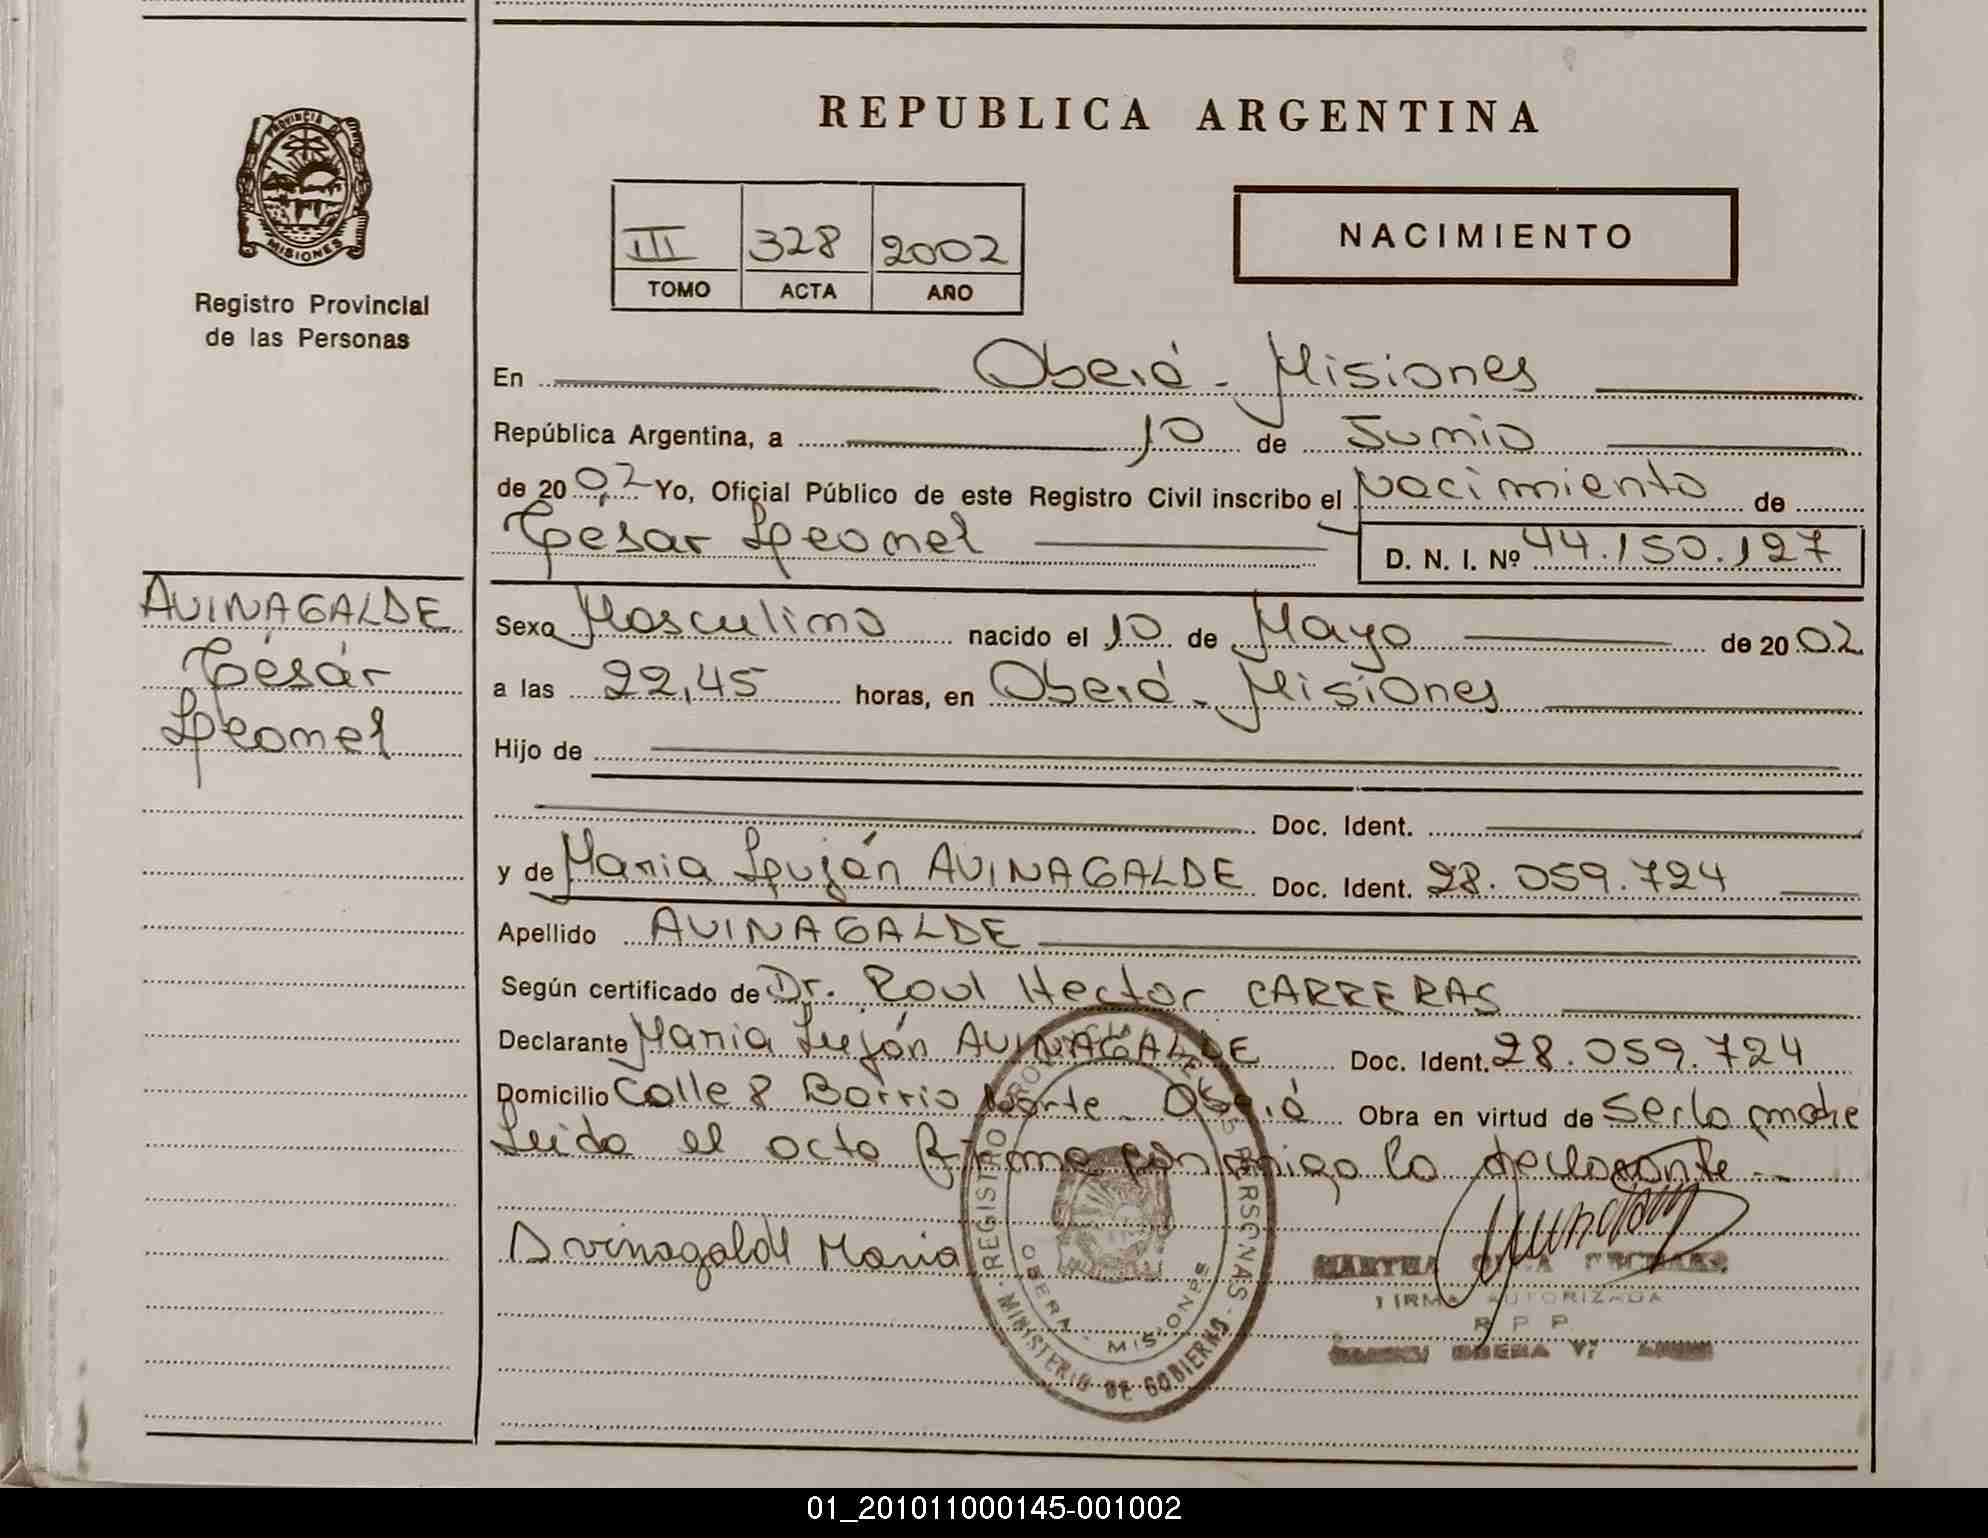 PROVINCIA DE
MISIONES
Registro Provincial
de las Personas
REPUBLICA ARGENTINA
III 328 2002
TOMO ACTA AÑO
NACIMIENTO
En Oberá - Misiones
República Argentina, a 10 de Junio
de 2002 Yo, Oficial Público de este Registro Civil inscribo el Nacimiento de
Cesar Leonel D. N. I. Nº 44.150.127
AVINAGALDE
César
Leonel
Sexo Masculino nacido el 10 de Mayo de 2002
a las 22,45 horas, en Oberá - Misiones
Hijo de
Doc. Ident.
y de Maria Luján AVINAGALDE Doc. Ident. 28.059.724
Apellido AVINAGALDE
Según certificado de Dr. Raul Hector CARRERAS
Declarante Maria Luján AVINAGALDE Doc. Ident. 28.059.724
Domicilio Calle 8 Barrio Norte - Oberá Obra en virtud de ser la madre
Leida el acta firma conmigo la declarante -
Avinagalde Maria
REGISTRO PROVINCIAL DE LAS PERSONAS
MINISTERIO DE GOBIERNO
OBERA - MISIONES
MARTHA
FIRMA AUTORIZADA
R P P
OBERA
01_201011000145-001002